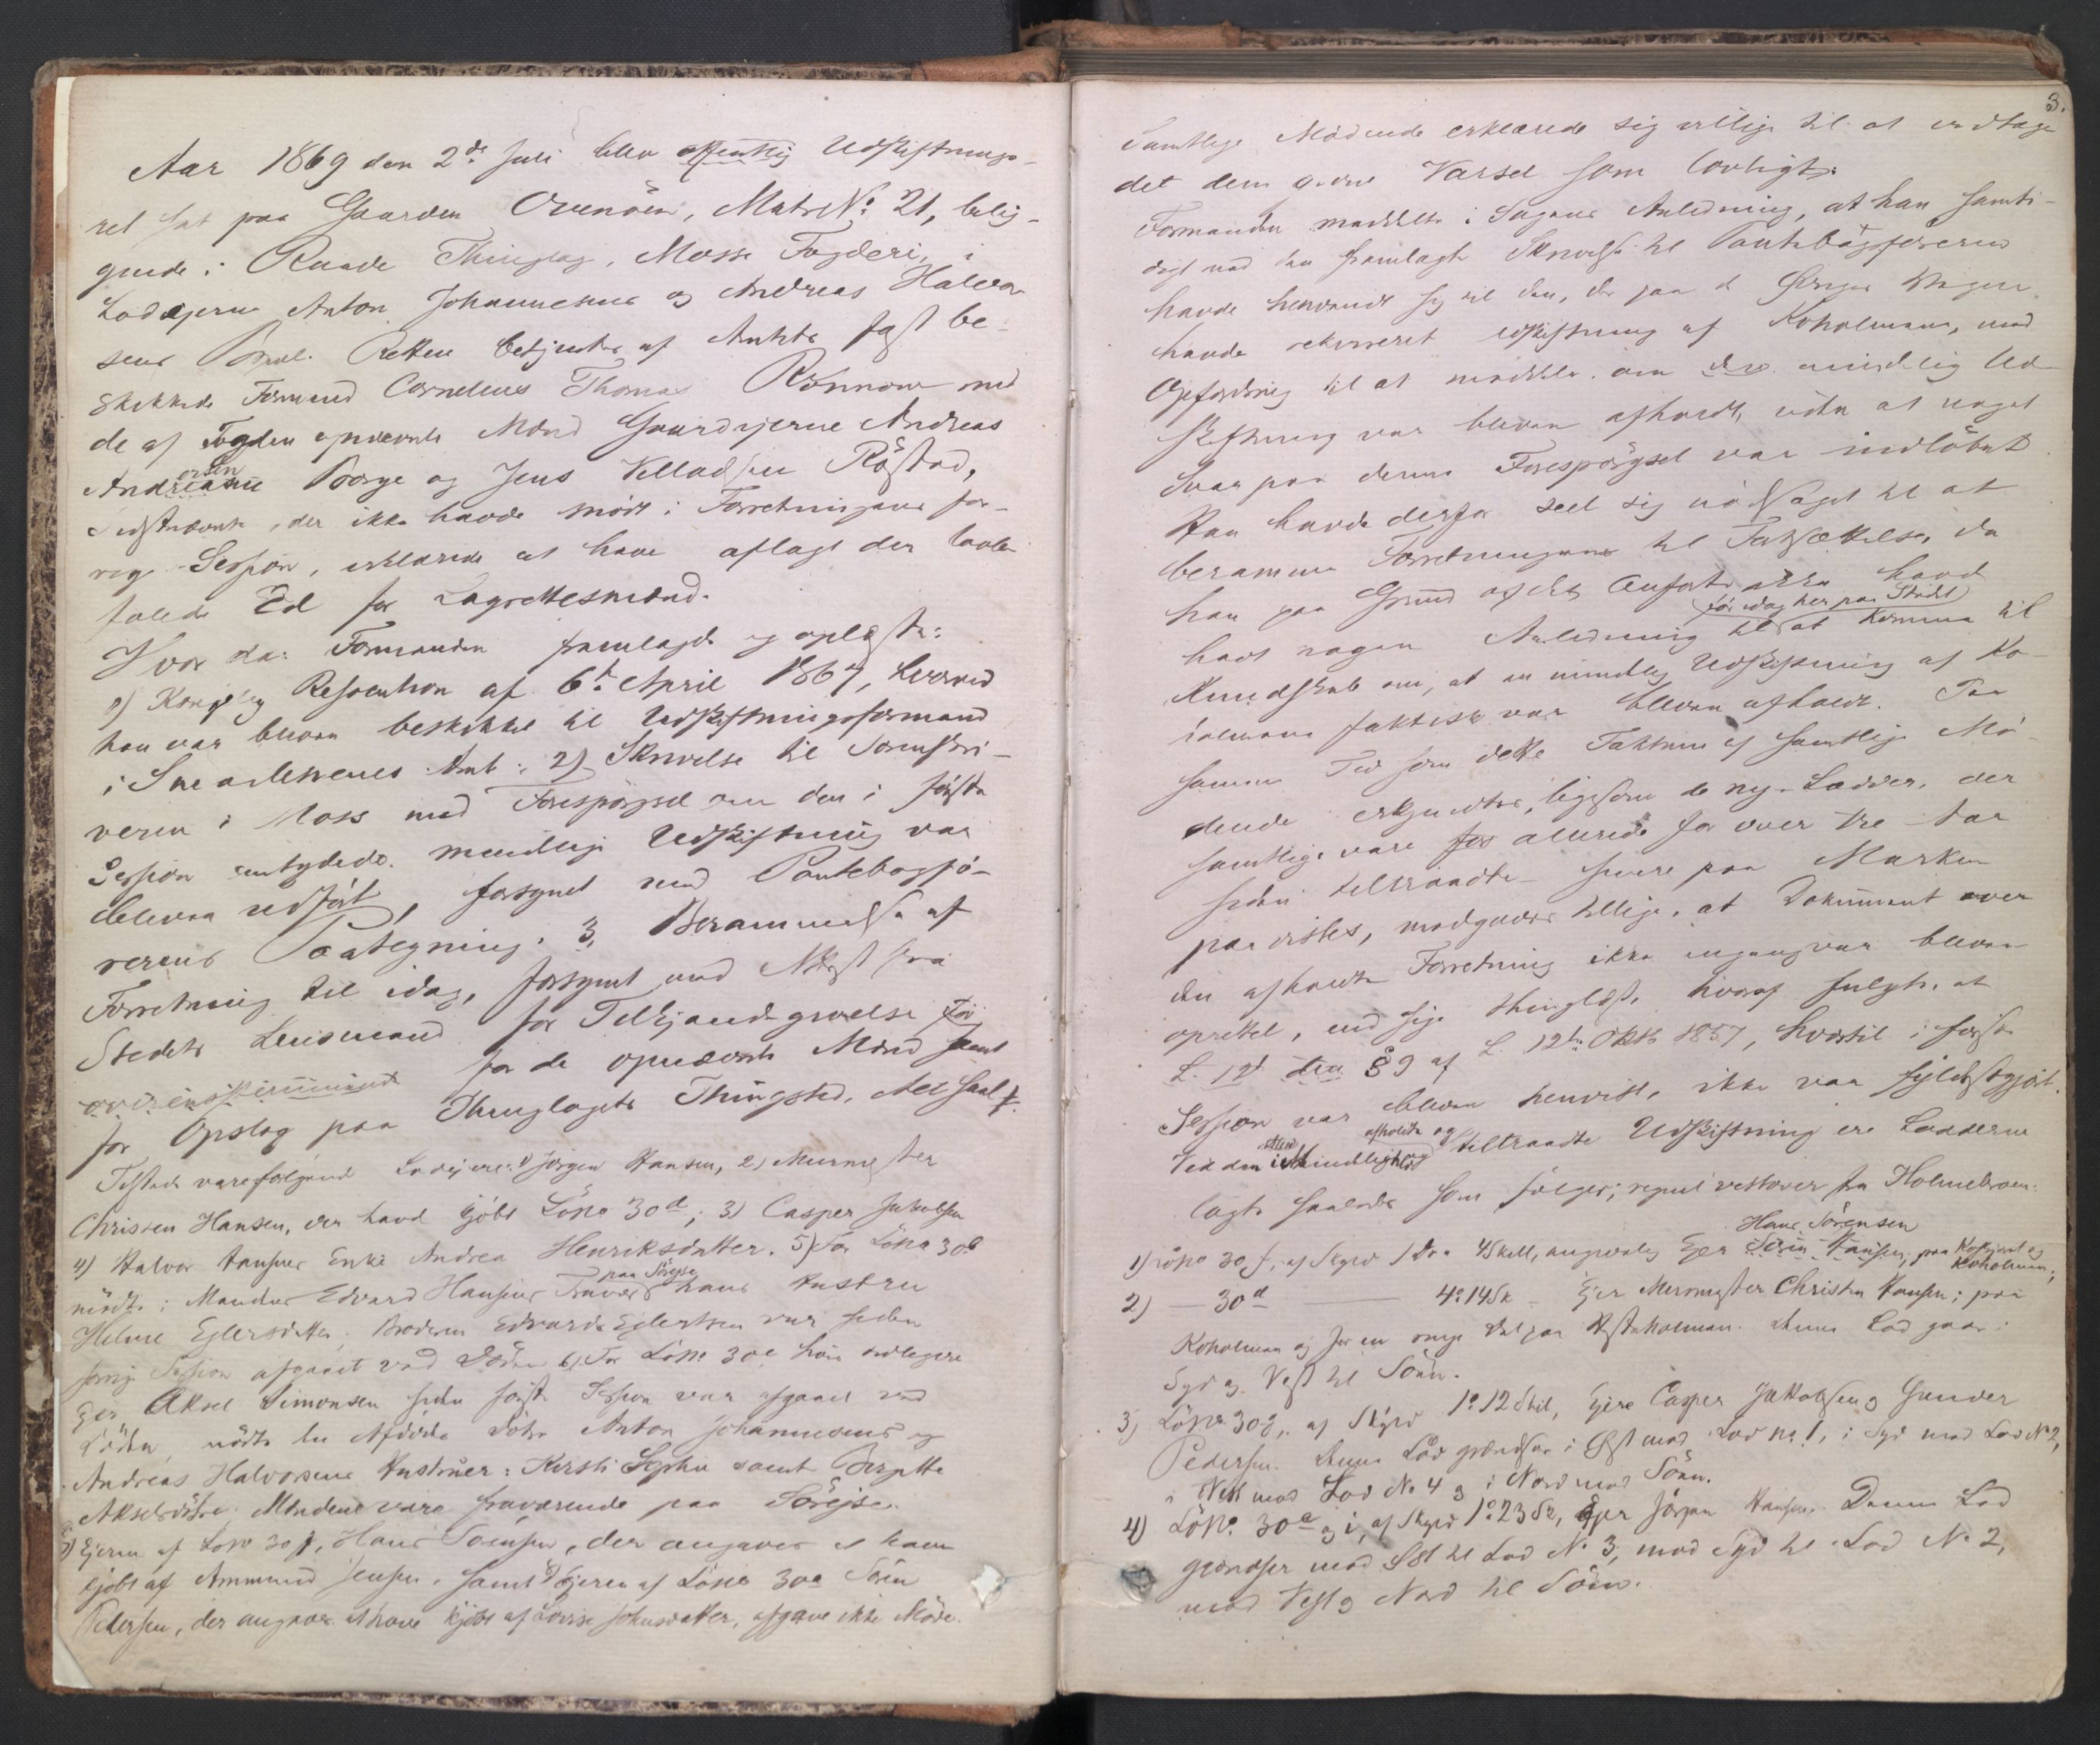 Aar 1869 den 2de Juli blev offentlig Udskiftnings-
ret sat paa Gaarden Ovenöen, Matr No 21, belig-
gende i Raade Thinglag, Mosse Fogderi, i
Lodejerne Anton Johannesens og Andreas Halvor
sens Retten betjentes af Amtets fast be-
skikkede Formand Cornelius Thomas Rönnow med
de af Fogden opnævnte Mænd Gaardejerne Andreas
Andreassen Borge og Jens Velladsen Röstad,
Sidstnævnte, der ikke havde mödt i Forretningens for-
rige Session, erklærede at have aflagt den lovbe
falede Ed for Lagrettesmænd.
Hvor da: Formanden fremlagde og oplæste:
1) Kongelig Resolution af 6te April 1867, hvorved
han var bleven beskikket til Udskiftningsformand
i Smaalenenes Amt: 2) Skrivelse til Sorenskri-
veren i Moss med Forespörgsel om den i förste
Session antydede mindelige Udskiftning var
bleven udfört, forsynet med Pantebogfö-
rerens Paategning. 3, Berammelse af
Forretning til idag, forsynet med Attest fra
Stedets Lensmand for Tilkjendegivelse for
overensstemmende for de opnævnte Mænd samt
for Opslag paa Thinglagets Thingsted. Alt saal
Tilstede vare fölgende Lodejere: 1) Jörgen Hansen, 2) Murmester
Christen Hansen, der havd kjöbt Löno 30d; 3) Casper Jakobsen
4) Halvor Hansens Enke Andrea Henriksdatter. 5) For Löno 30b
mödte i Manden Edvard Hansens Fravær paa Söreise hans Hustru
Helene Eglersdatter. Broderen Edvard Eglertsen var siden
forrige Session afgaaet ved Döden 6) For Löno 30c hvis tidligere
Ejer Aksel Simonsen siden förste Session var afgaaet ved
Döden, mödte hu Afdödes Dötre Anton Johannesens og
Andreas Halvorsens Hustruer: Kersti Sophie samt Birgitte
Akselsdötre. Mændene vare fraværende paa Söreise.
7) Ejeren af Löno 30f, Hans Sörensen, der angaves at have
kjöbt af Ammund Jensen, samt 8) Ejeren af Löno 30a Sören
Pedersen, der angaves at have kjöbt af Lovise Johnsdatter, afgave ikke Möde.
3.
Samtlige Mödende erklærede sig villige til at vedtage
det dem givne Varsel som lovligt.
Formanden meddelte i Sagens Anledning, at han samti-
digt med den fremlagte Skrivelse til Pantebogföreren
havde henvendt sig til den, der paa de Övriges Vegne
havde rekvireret Udskiftning af Koholmene, med
Opfordring til at meddele om den mindelig Ud-
skiftning var bleven afholdt, uden at noget
Svar paa denne Forespörgsel var indlöbet.
Han havde derfor seet sig nödsaget til at
beramme Forretningens til Fortsættelse, da
han paa Grund af det Anförte ikke havd
havt nogen Anledning til för idag her paa Stedet at komme til
Kundskab om, at en mindelig Udskiftning af Ko-
holmene faktisk var bleven afholdt. Paa
samme Tid som dette Faktum af samtlige Mö-
dende erkjendtes, ligesom de nye Lodder, der
samtlige vare for allerede for over tre Aar
siden tiltraadte senere paa Marken
paavistes, medgaves tillige, at Dokument over
den afholdte Forretning ikke engang var bleven
oprettet, end sige thinglæst, hvoraf fulgte, at
L. 12t den § 9 af L. 12te Oktb 1857, hvortil i förste
Session var bleven henvist, ikke var fyldestgjort.
Ved den i Mindelighed afholdte og tiltraadte Udskiftning ere Lodderne
lagte saaledes som fölger; regnet vestover fra Holmebroen:
1) Löno 30 f, af Skyld 1 Dr. 4 Skill, angivelig Ejer Hans Sörensen Sörin Hansen, paa Kokjend og Koholmen;
2) — 30d — 4o 14 Sk Ejer Murmester Christen Hansen; paa
Koholmen og for en ringe Del paa Vestenholmen. Denne Lod gaar i
Syd og Vest til Söen.
3) Löno 30g, af Skyld 1o 12 Skil, Ejere Casper Jakobsen og Gunder
Pedersen. Denne Lod grændser i Öst mod Lod no 1, i Syd mod Lod No 2,
i Vest mod Lod No 4 og i Nord mod Söen.
4) Löno. 30e og i, af Skyld 1o 23 Sk, Ejer Jörgen Hansen. Denne Lod
grændser mod Öst til Lod No 3, mod Syd til Lod No 2,
mod Vest og Nord til Söen.